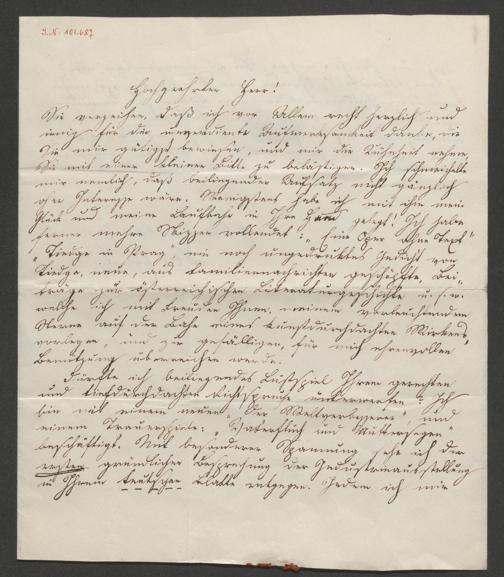 I.N. 101.687
Hochgeehrter Herr!
Sie verzeihen, daß ich vor Allem recht herzlich und
innig für die unverdiente Aufmerksamkeit danke, die
Sie mir gütigst bewiesen, und mir die Freiheit nehme,
Sie mit einer kleinen Bitte zu belästigen. Ich schmeichelte
mir nemlich, daß beiliegender Aufsatz nicht gänzlich
ohne Interesse wäre. Wenigstens habe ich mit ihm mein
Glück und meine Laufbahn in Ihre Hand gelegt! Ich habe
ferner mehre Skizzen vollendet: „Eine Oper ohne Text",
„Tiedge in Prag", ein noch ungedrucktes Gedicht von
Tiedge, neue, aus Familiennachrichten geschöpfte, Bei-
träge zur österreichischen Literaturgeschichte u.s.w.
welche ich mit Freuden Ihnen, meinem vorleuchtenden
Sterne auf der Bahn eines kunstdurchdachten Wirkens
vorlegen, und zur gefälligen, für mich ehrenvollen
Benützung überreichen werde.
Dürfte ich beiliegendes Lustspiel Ihrem gerechten
und tiefdurchdachten Richtspruche unterwerfen? Ich
bin mit einem neuen „Der Weltverbesserer" und
einem Trauerspiele: „Vaterfluch und Muttersegen"
beschäftigt. Mit besonderer Spannung sehe ich der
ersten gründlichen Besprechung der Industrieausstellung
in Ihrem deutschen Blatte entgegen. Indem ich mir